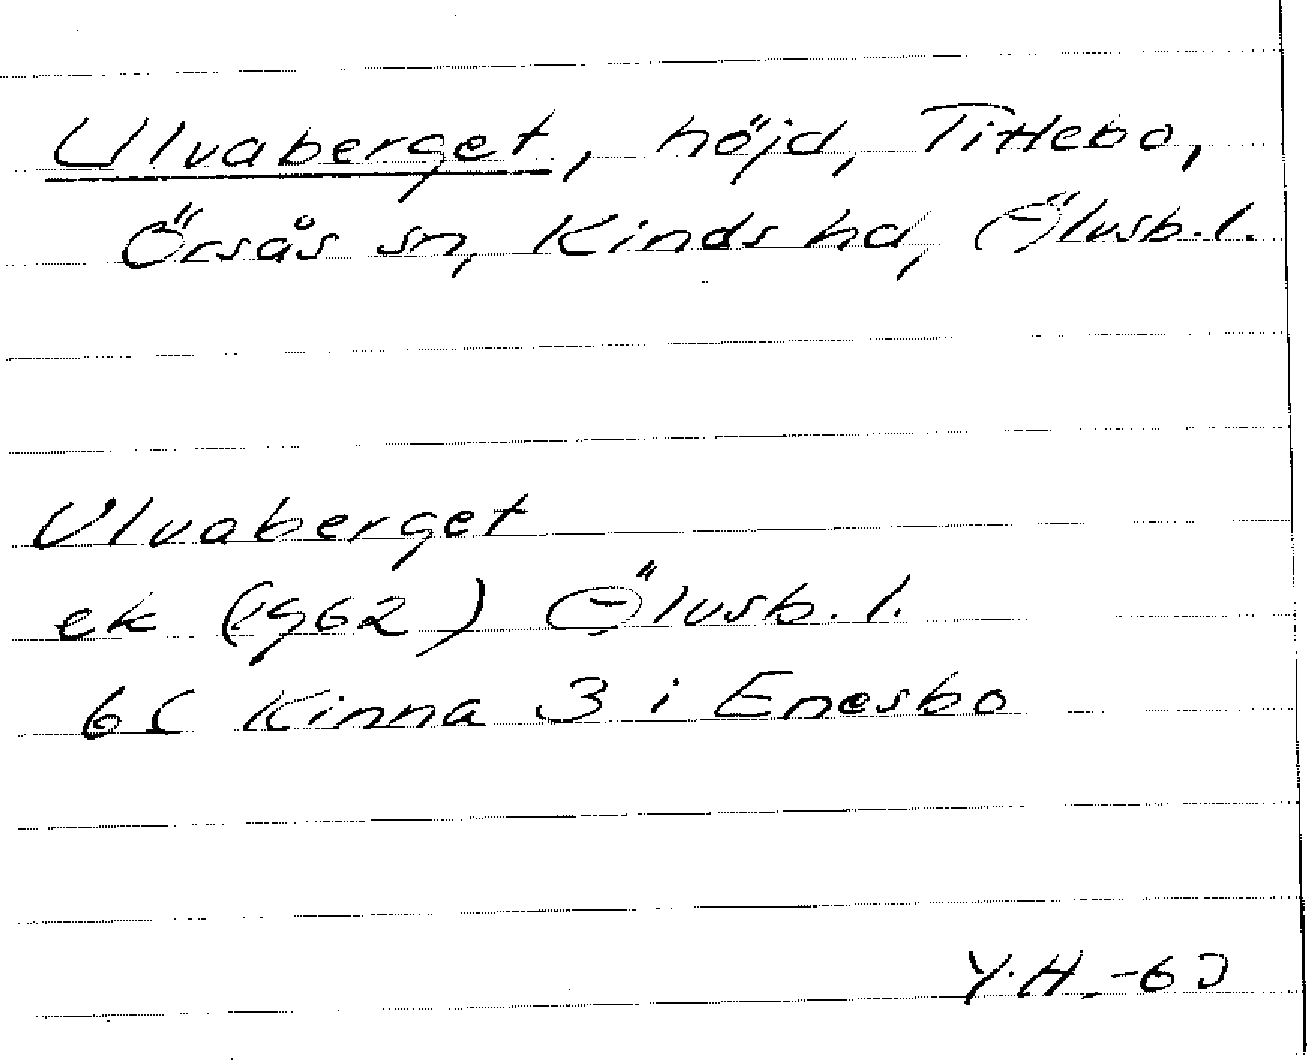 Ulvaberget, höjd, Tittebo,
Örsås sn, Kinds hd, Älvsb. l.
Ulvaberget
ek (1962) Älvsb. l.
6C Kinna 3 i Enesbo
Y.H.